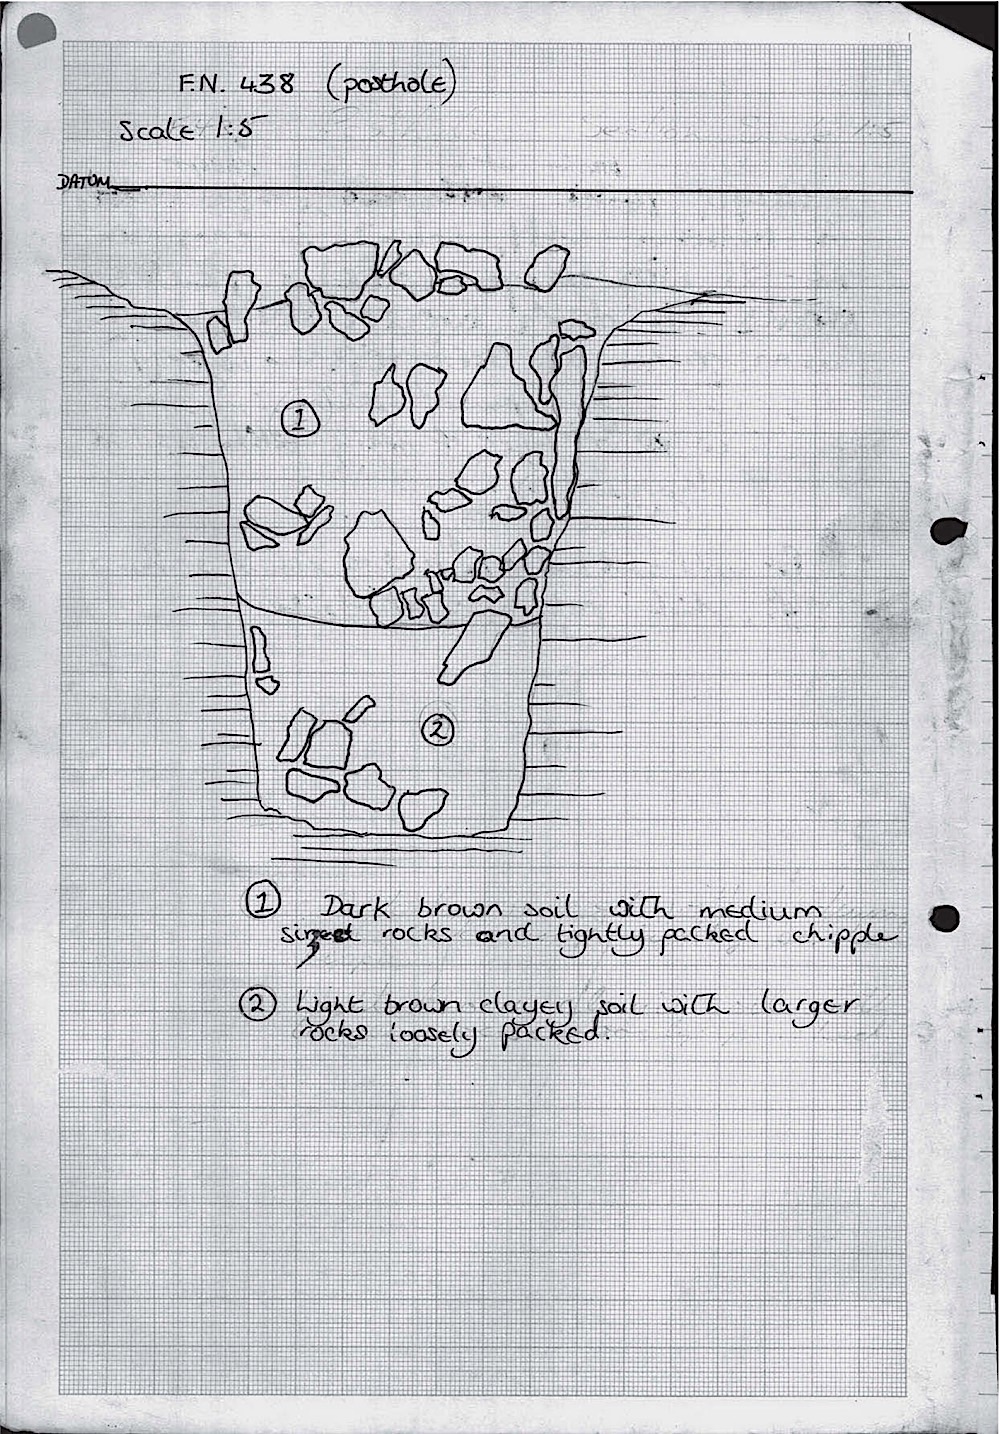 F.N. 438 (posthole)
Scale 1:5
1:5
DATUM
1
2
1 Dark brown soil with medium
sized rocks and tightly packed chipple
2 Light brown clayey soil with larger
rocks loosely packed.